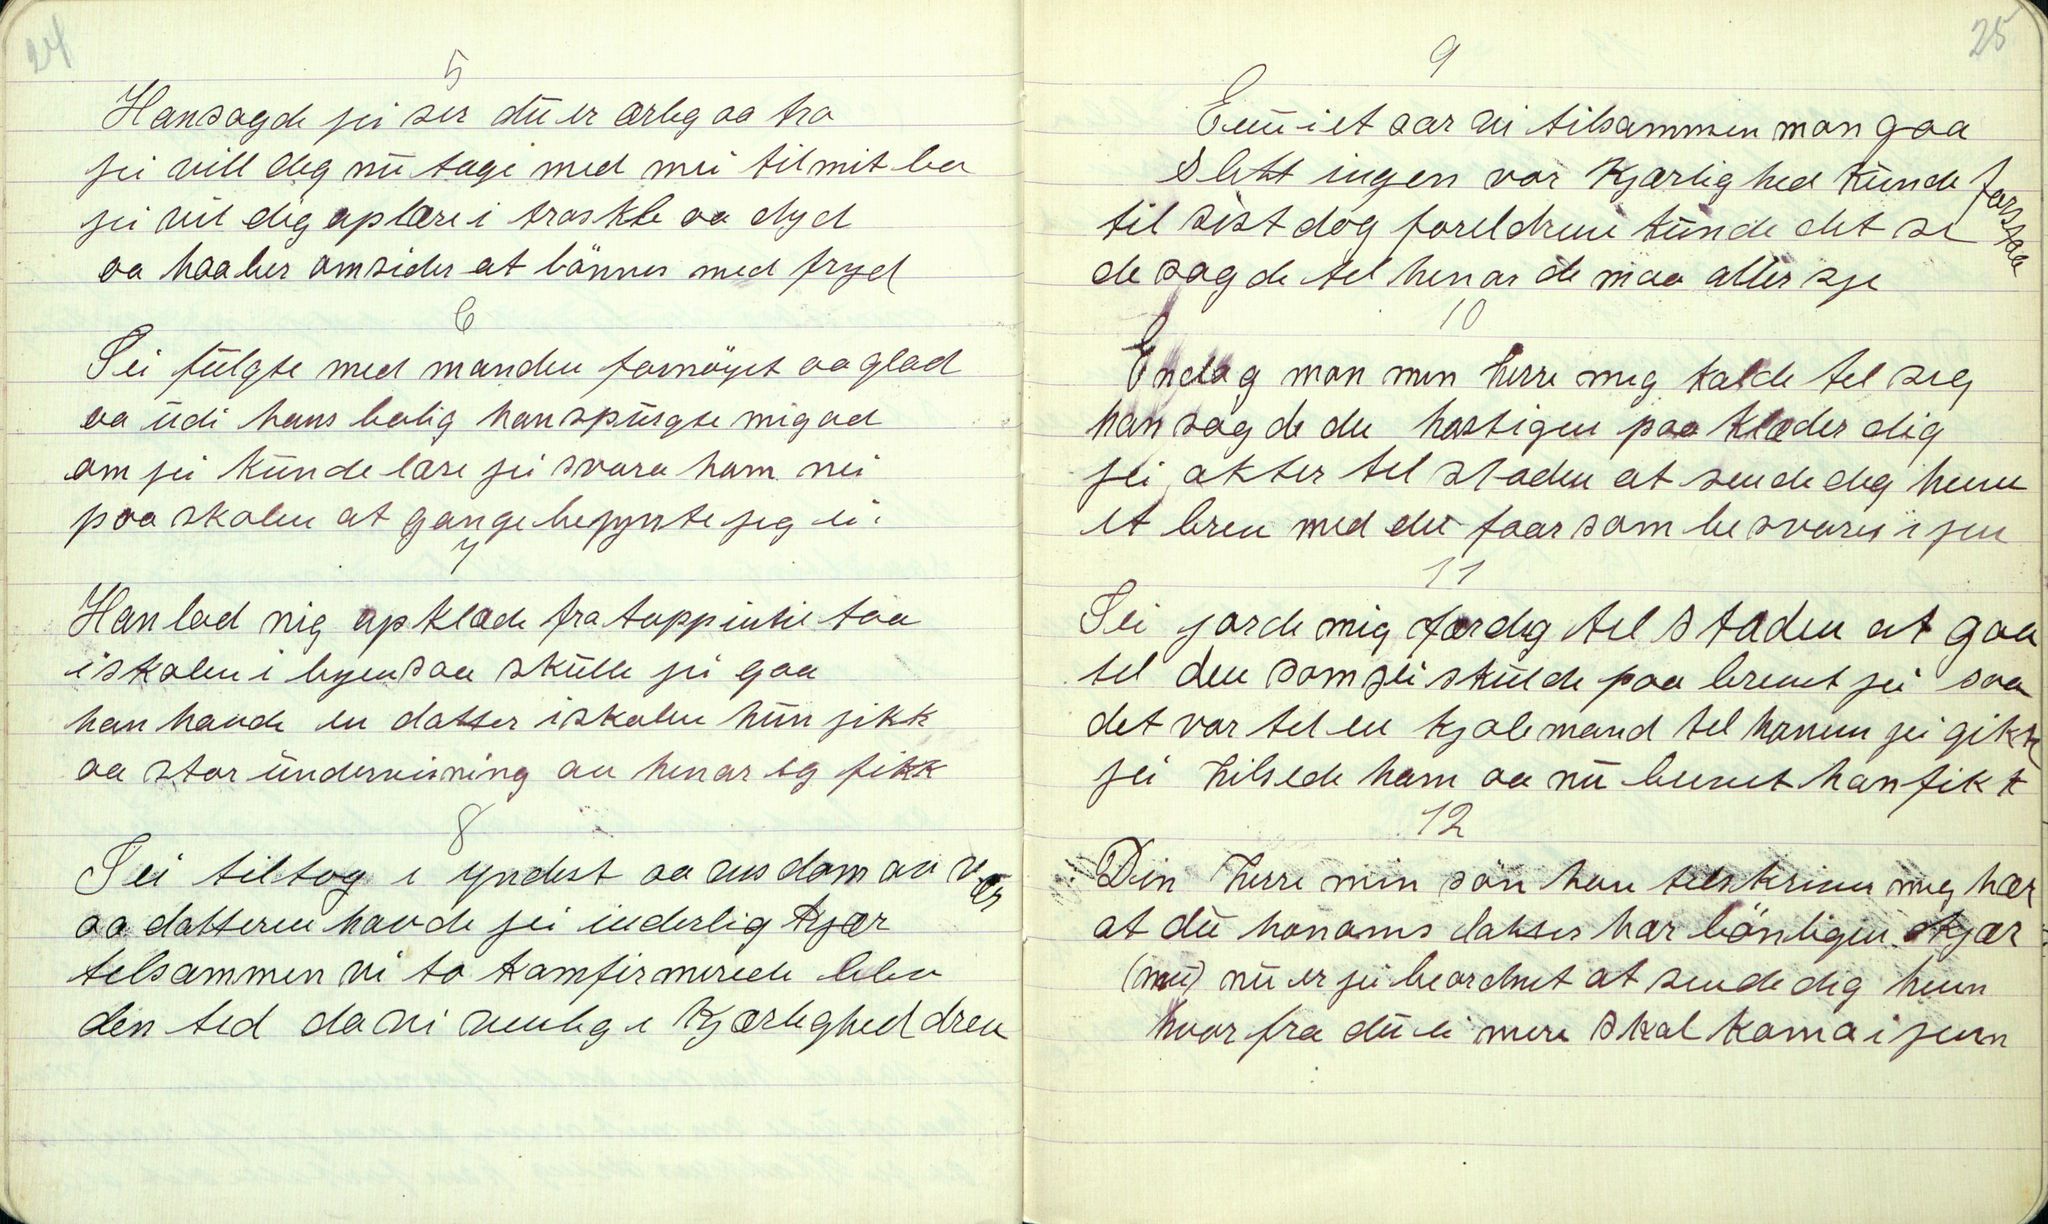 24
5
Han sagde jei ser du er ærlig oa tro
jei vill dig nu tage med mei til mit bo
jei vil dig oplære i troskb oa dyd
oa haaber omsider at lönnes med fryd
6
Jei fulgte med manden fornöyet oa glad
oa udi hans bolig han spurgte mig ad
om jei kunde lære jei svara ham nei
paa skolen at gange begynte jeg ei
7
Han lod mig opklæde fra topp intil taa
i skolen i byen saa skulle jei gaa
han havde en datter i skolen hun jikk
oa stor undervisning av henar eg fikk
8
Jei tiltog i yndest oa visdom av vær
oa datteren havde jei inderlig kjær
tilsammen vi to komfirmerede blev
den tid da vi venlig i kjærlighed drev
25
9
Enu i et aar vi tilsammen mon gaa
Slett ingen vor kjærlighed kunde forstaa
til sist dog foreldrene kunde det se
de sagde tel henar de maa aller sje
10
En dag mon min herre mig kalde tel sig
han sagde du hastigen paa klæder dig
jei akter tel staden at sende dig henn
et brev med du faar som besvares i jen
11
Jei jorde mig færdig tel staden at gaa
tel den som jei skulde paa brevet jei saa
det var tel en kjolemand tel honnom jei gikk
jei hilsede ham oa nu brevet han fikk
12
Din herre min sön han telskriver mig hær
at du honoms datter har lönligen kjær
(mei) nu er jei beordnet at sende dig henn
hvor fra du ei mere skal koma i jenn